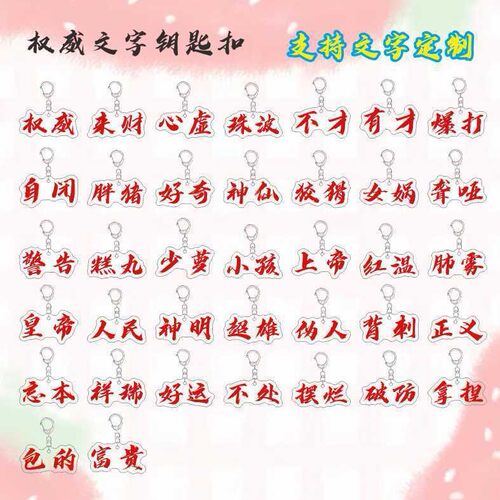 权威文字钥匙扣 支持文字定制
权威 来财 心虚 珠波 不才 有才 爆打
自闭 胖猪 好奇 神仙 狡猾 女娲 聋哑
警告 糕丸 少萝 小孩 上帝 红温 肺雾
皇帝 人民 神明 超雄 伪人 背刺 正义
忘本 祥瑞 好运 不处 摆烂 破防 拿捏
包的 富贵